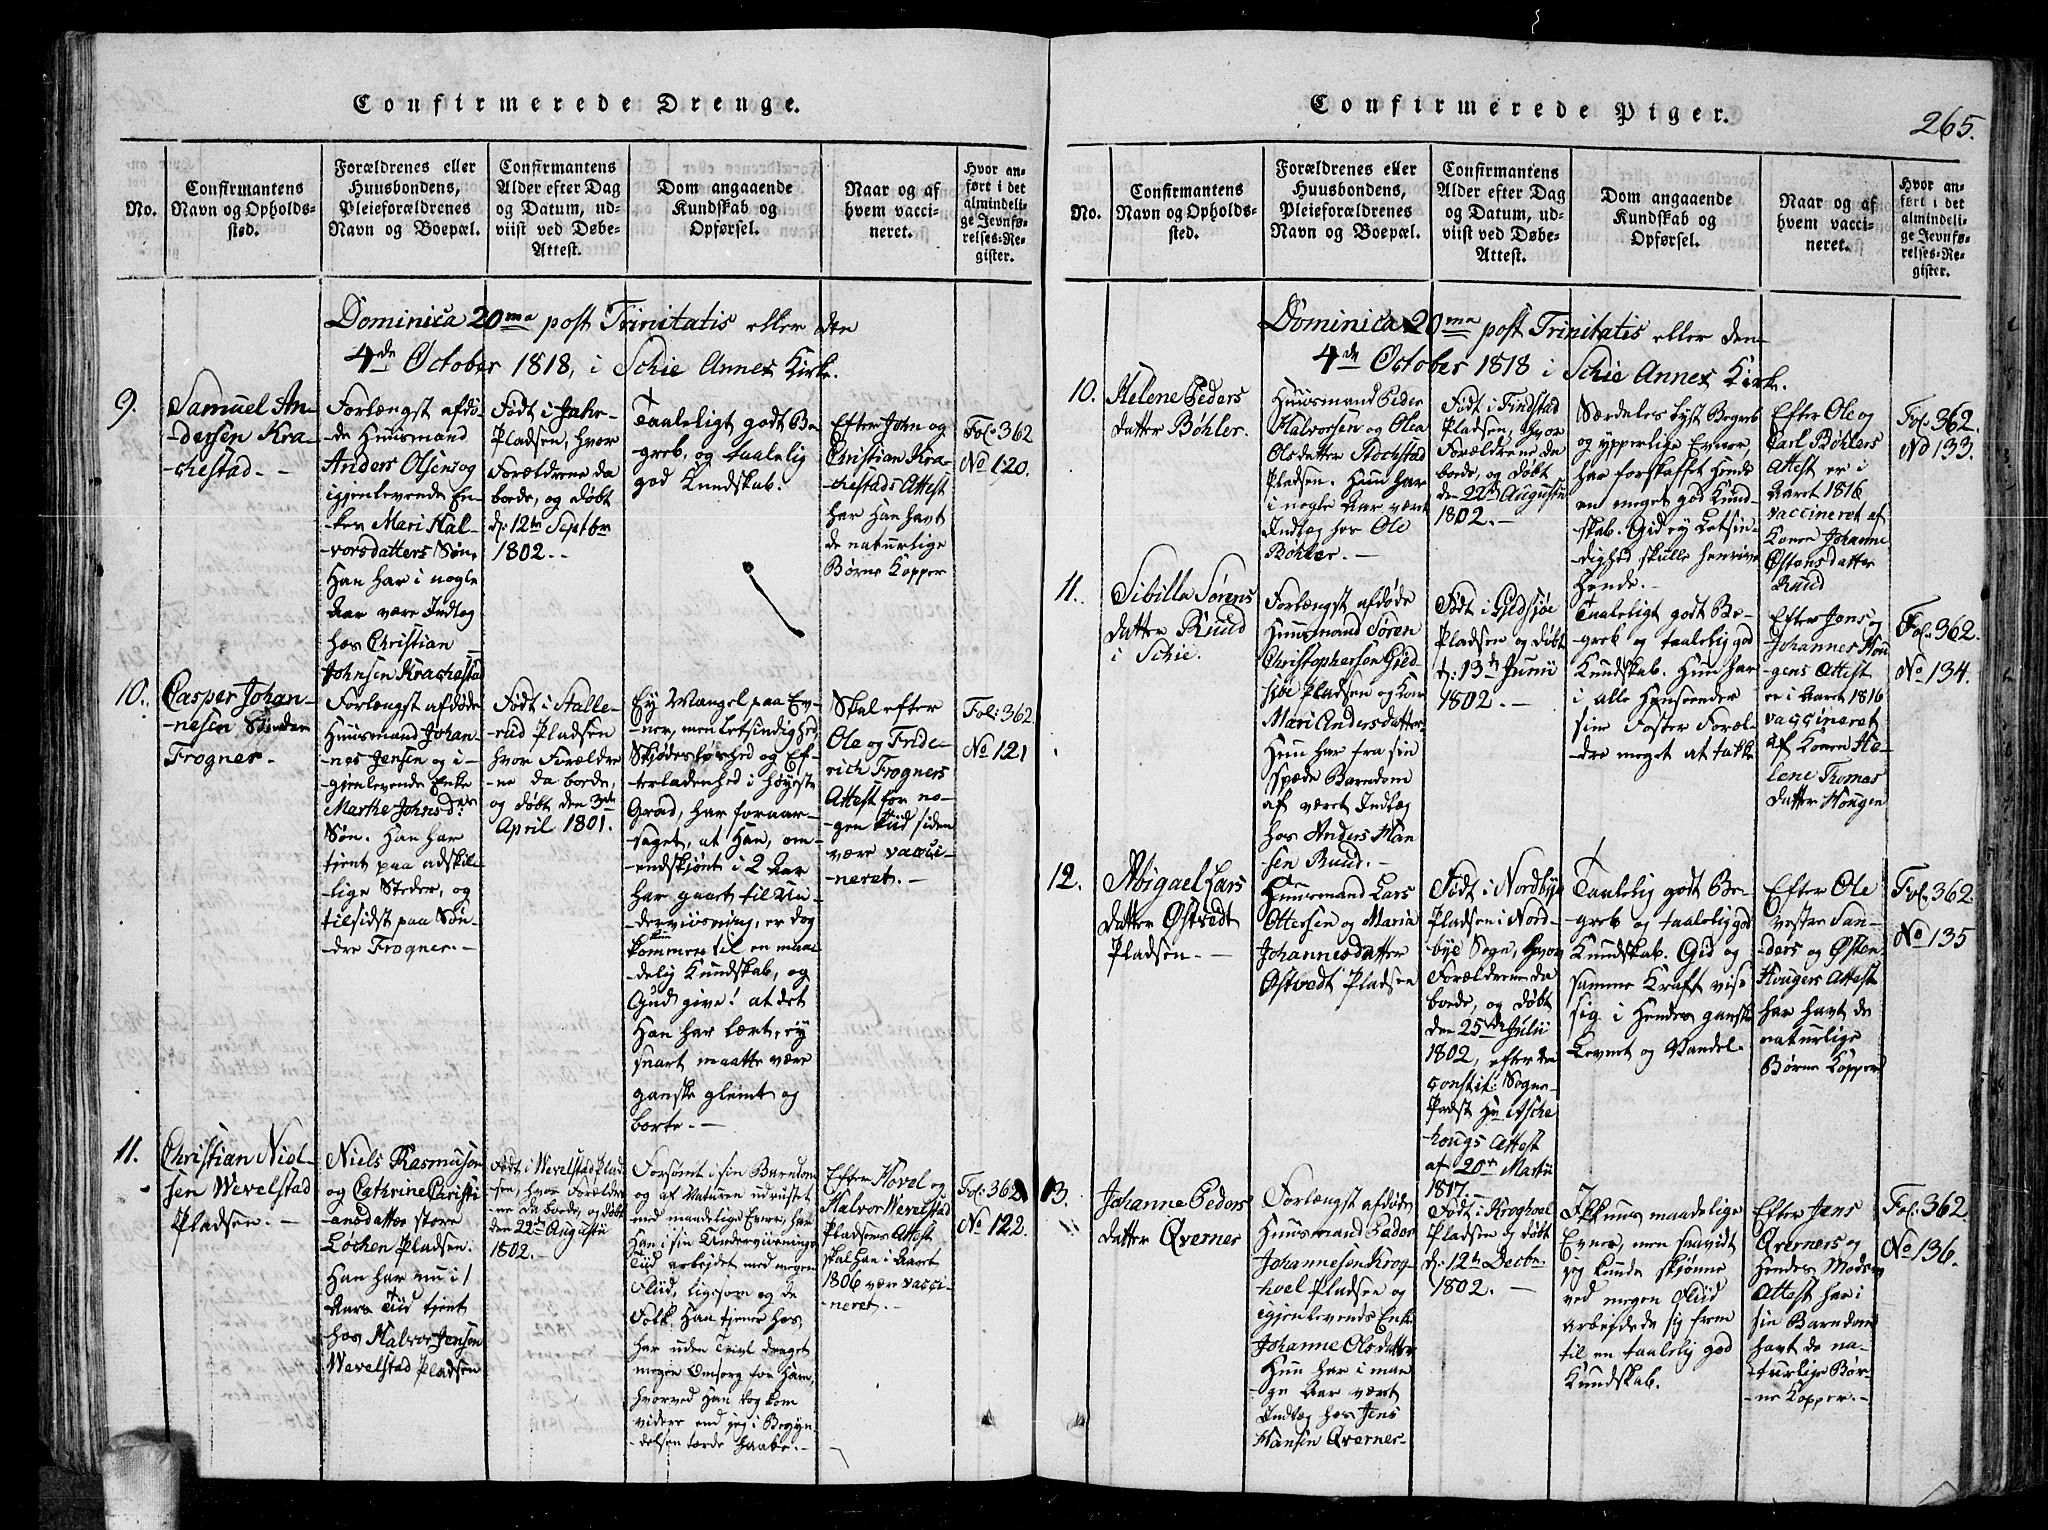 Confirmerede Drenge.
No.
Confirmantens
Navn og Opholds-
sted.
Forældrenes eller
Huusbondens,
Pleieforældrenes
Navn og Boepæl.
Confirmantens
Alder efter Dag
og Datum, ud-
viist ved Døbe-
Attest.
Dom angaaende
Kundskab og
Opførsel.
Naar og af
hvem vacci-
neret.
Hvor an-
ført i det
almindeli-
ge Jevnfø-
relses-Re-
gister.
Dominica 20ma post Trinitatis eller den
4de October 1818, i Schie Annex Kirke.
9.
Samuel An-
dersen Kra-
chestad. -
Forlængst afdø-
de Huusmand
Anders Olsens og
igjenlevende En-
ken Mari Hal-
vorsdatters Søn.
Han har i nogle
Aar være Indlæg
hos Christian
Johnsen Krachestad
Født i Jahr-
Pladsen, hvor
Forældrene da
boede, og døbt
d: 12te Septbr
1802. -
Taaleligt godt Be-
greb, og taalelig
god Kundskab.
Efter John og
Christian Kra-
chestads Attest
har Han havt
de naturlige
Børne Kopper
Fol: 362
No 120.
10.
Casper Johan-
nesen Søndre
Frogner.
Forlængst afdøde
Huusmand Johan-
nes Jensen og i-
gjenlevende Enke
Marthe Johnsdr
Søn. Han har
tjent paa adskil-
lige Steder, og
tilsidst paa Søn-
dre Frogner. -
Født i Stalle-
rud Pladsen
hvor Forældre-
ne da boede,
og døbt den 3de
April 1801.
Ey Mangel paa Ev-
ner, men Letsindighed,
Skjødesløshed og Ef-
terladenhed i høyeste
Grad, har foraar-
saget, at Han, om-
endskjønt i 2 Aar
har gaaet til Un-
derviisning, er dog
kun
kommen til en maa-
delig Kundskab, og
Gud give! at det
Han har lært, ey
snart maatte være
ganske glemt og
borte. -
Skal efter
Ole og Fride-
rich Frogners
Attest for no-
gen Tiid siden
være vacci-
neret. -
Fol: 362.
No 121
11.
Christian Niel-
sen Wevelstad
Pladsen. -
Niels Rasmusen
og Cathrine Christi-
ansdatter store
Løchen Pladsen.
Han har nu i 1
Aars Tiid tjent
hos Halvor Jensen
Wevelstad Pladsen
Født i Wevelstad Plad-
sen, hvor Forældre-
ne da boede, og døbt
den 22de Augustii
1802. -
Forsømt i sin Barndom
og af Naturen udrustet
med maadelige Evner, har
Han i sin Underviisnings
Tiid arbejdet med megen
Fliid, ligesom og de
Folk, Han tjener hos,
har uden Tvivl draget
megen Omsorg for Ham,
hvorved Han dog kom
videre end jeg i Begyn-
delsen torde haabe. -
Efter Hovel og
Halvor Wevelstad
Pladsens Attest
skal Han i Aaret
1806 være vacci-
neret. -
Fol: 362
No 122.
Confirmerede Piger.
265.
No.
Confirmantens
Navn og Opholds-
sted.
Forældrenes eller
Huusbondens,
Pleieforældrenes
Navn og Boepæl.
Confirmantens
Alder efter Dag
og Datum, ud-
viist ved Døbe-
Attest.
Dom angaaende
Kundskab og
Opførsel.
Naar og af
hvem vacci-
neret.
Hvor an-
ført i det
almindeli-
ge Jevnfø-
relses-Re-
gister.
Dominica 20ma post Trinitatis eller den
4de October 1818 i Schie Annex Kirke.
10.
Helene Peders
datter Bøhler.
Huusmand Peder
Halvorsen og Olea
Olsdatter Stochstad
Pladsen. Hun har
i nogle Aar været
Indlæg hos Ole
Bøhler. -
Født i Findstad
Pladsen, hvor
Forældrene da
boede, og døbt
den 22de Augustii
1802. -
Særdeles lyst Begreb
og ypperlige Evner,
har forskaffet Hende
en meget god Kund-
skab. Gid ey Letsin-
dighed skulle henrive
Hende. -
Efter Ole og
Carl Bøhlers
Attest er i
Aaret 1816
vaccineret af
Konen Johanne
Østensdatter
Ruud
Fol: 362.
No 133.
11.
Sibilla Sørens
datter Ruud
i Schie.
Forlængst afdøde
Huusmand Søren
Christophersen Gjed-
sjøe Pladsen og Kar-
Mari Andersdatter
Hun har fra sin
spæde Barndom
af været Indlæg
hos Anders Han-
sen Ruud. -
Født i Gjedsjøe
Pladsen og døbt
d: 13de Junii
1802. -
Taaleligt godt Be-
greb og taalelig god
Kundskab. Hun har
i alle Henseender
sine Foster Foræl-
dre meget at takke
Efter Jens og
Johannes Hou-
gens Attest
er i Aaret 1816
vaccineret
af Konen He-
lene Thomas
datter Hougen
Fol: 362.
No 134.
12.
Abigael Lars
datter Østvedt
Pladsen. -
Huusmand Lars
Ottersen og Maria
Johannesdatter
Østvedt Pladsen
Født i Nordbye
Pladsen i Nord-
bye Sogn, hvor
Forældrene da
boede, og døbt
den 25de Julii
1802, efter den
constit: Sogne-
Præst Hr Asche-
hougs Attest
af 20de Martii
1817.
Taalelig godt Be-
greb og taalelig god
Kundskab. Gid og
samme Kraft vise
sig i Hendes ganske
Levnet og Vandel.
Efter Ole
vestre San-
ders og Østen
Hougers Attest
har havt de
naturlige
Børne Kopper
Fol: 362.
No 135
13.
Johanne Peders
datter Qverner
Forlængst afdøde
Huusmand Peder
Johannesen Krog-
hoel Pladsen og
igjenlevende Enke
Johanne Olsdatter
Hun har i man-
ge Aar været
Indlæg hos Jens
Hansen Qverner-
Født i Kroghoel
Pladsen og døbt
d: 12te Decbr
1802. -
Ikkuns maadelige
Evner, men saavidt
jeg kunde skjønne
ved megen Fliid
arbejdede sig frem
til en taalelig god
Kundskab.
Efter Jens
Qverners og
Hendes Moders
Attest har i
sin Barndom
havt de na-
turlige Bør-
ne Kopper. -
Fol: 362.
No 136.